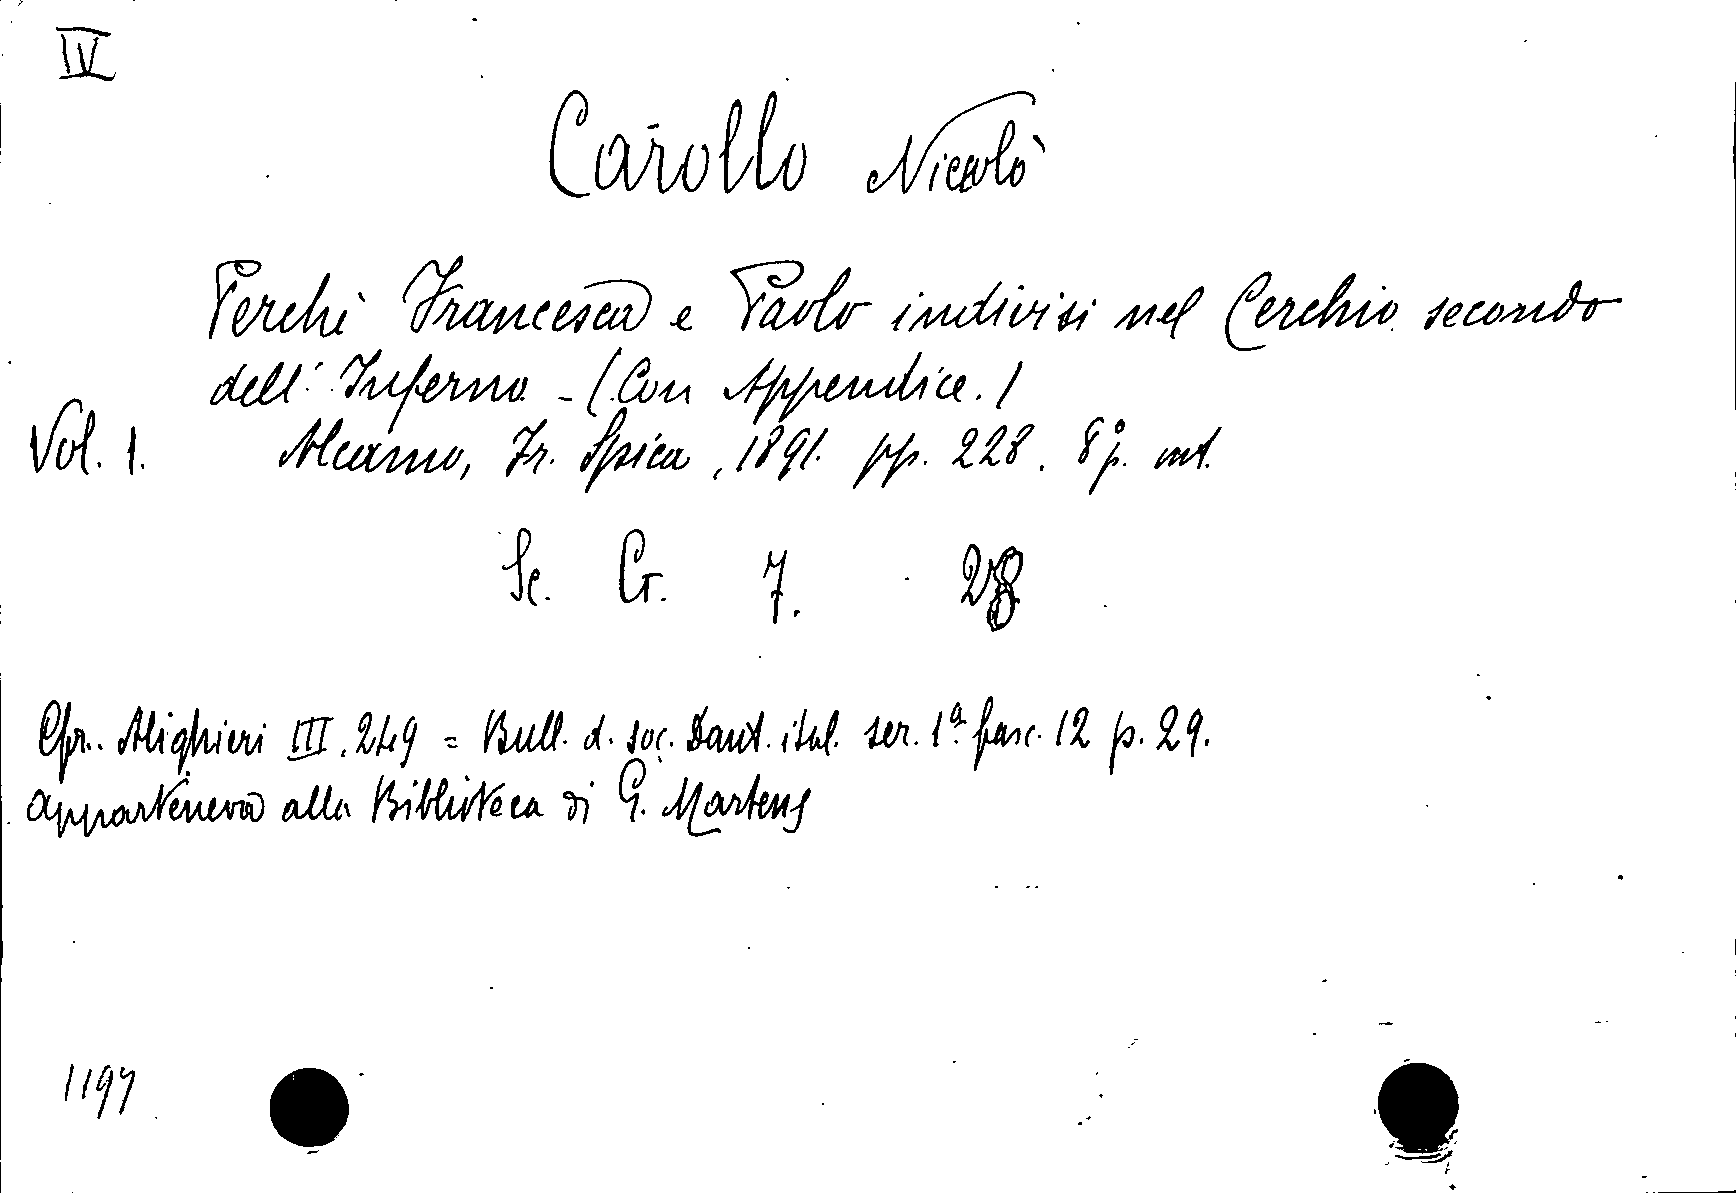 IV
Carollo Nicolò
Perchè Francesca e Paolo indivisi nel Cerchio secondo
dell' Inferno - (Con Appendice.)
Vol. 1. Alcamo, Fr. Spica, 1891. pp. 228. 8º p. int.
Sc. Cr. 7. 28
Cfr. Alighieri III. 249 = Bull. d. soc. Dant. ital. ser. 1ª fasc. 12 p. 29.
apparteneva alla Biblioteca di G. Martens
1197